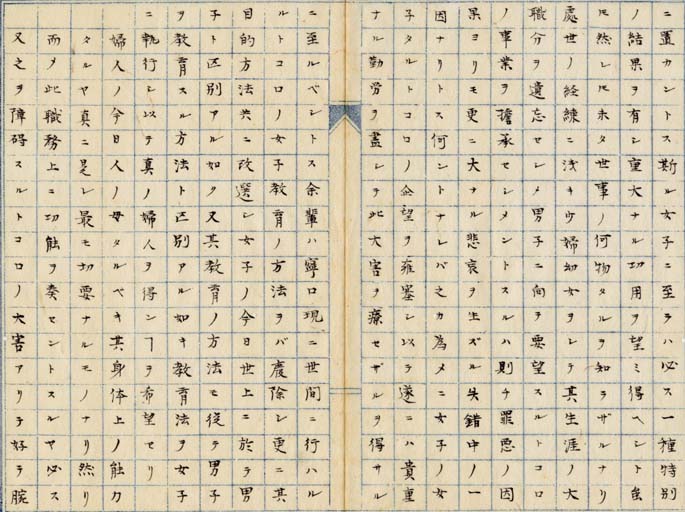 ニ置カントス斯ル女子ニ至ラハ必ス一種特別
ノ結果ヲ有シ重大ナル功用ヲ望ミ得ヘシト虽
𪜈然レ𪜈未タ世事ノ何物タルヲ知ラザルナリ
處世ノ経練ニ浅キウ婦幼女ヲシテ其生涯ノ大
職分ヲ遺忘セシメ男子ニ向テ要望スルトコロ
ノ事業ヲ擔承セシメントスルハ則チ罪悪ノ因
果ヨリモ更ニ大ナル悲哀ヲ生ズル失錯中ノ一
因ナリトス何ントナレバ之カ為メニ女子ノ女
子タルトコロノ企望ヲ雍塞シ以テ遂ニハ貴重
ナル勤労ヲ盡シテ此大害ヲ療セザルヲ得サル
ニ至ルベシトス余輩ハ寧ロ現ニ世間ニ行ハル
ルトコロノ女子教育ノ方法ヲバ廢除シ更ニ其
目的方法共ニ改選シ女子ノ今日世上ニ於テ男
子ト区別アル如ク又其教育ノ方法モ復テ男子
ヲ教育スル方法ト区別アル如キ教育法ヲ女子
ニ執行シ以テ真ノ婦人ヲ得ンヿヲ希望セリ
婦人ノ今日人ノ母タルベキ其身体上ノ能力
タルヤ真ニ是レ最モ切要ナルモノナリ然リ
而メ此職務上ニ功能ヲ奏セントスルヤ必ス
又之ヲ障碍スルトコロノ大害アリテ好テ腕